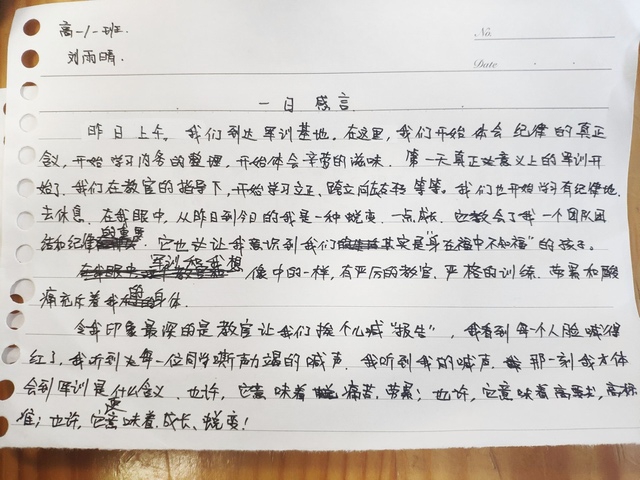 高一1班.
No.
刘雨晴.
Date
一日感言
昨日上午。我们到达军训基地。在这里,我们开始体会纪律的真正
含义,开始学习内务的整理,开始体会辛苦的滋味。第一天真正意义上的军训开
始了。我们在教官的指导下,开始学习立正、跨立向左右转等等。我们也开始学习有纪律地
去休息。在我眼中,从昨日到今日的我是一种蜕变,一点成长。它教会了我一个团队团
结和纪律的重要。它也让我意识到我们其实是“身在福中不知福”的孩子。
军训和我想像中的一样,有严厉的教官、严格的训练,劳累和酸
痛充斥着我的身体。
令我印象最深的是教官让我们挨个儿喊“报告”,我看到每一个人脸喊得
红了,我听到每一位同学嘶声力竭的喊声,我听到我的喊声,那一刻我才体
会到军训是什么含义、也许,它意味着痛苦、劳累;也许,它意味着高要求,高标
准;也许,它更意味着成长、蜕变!